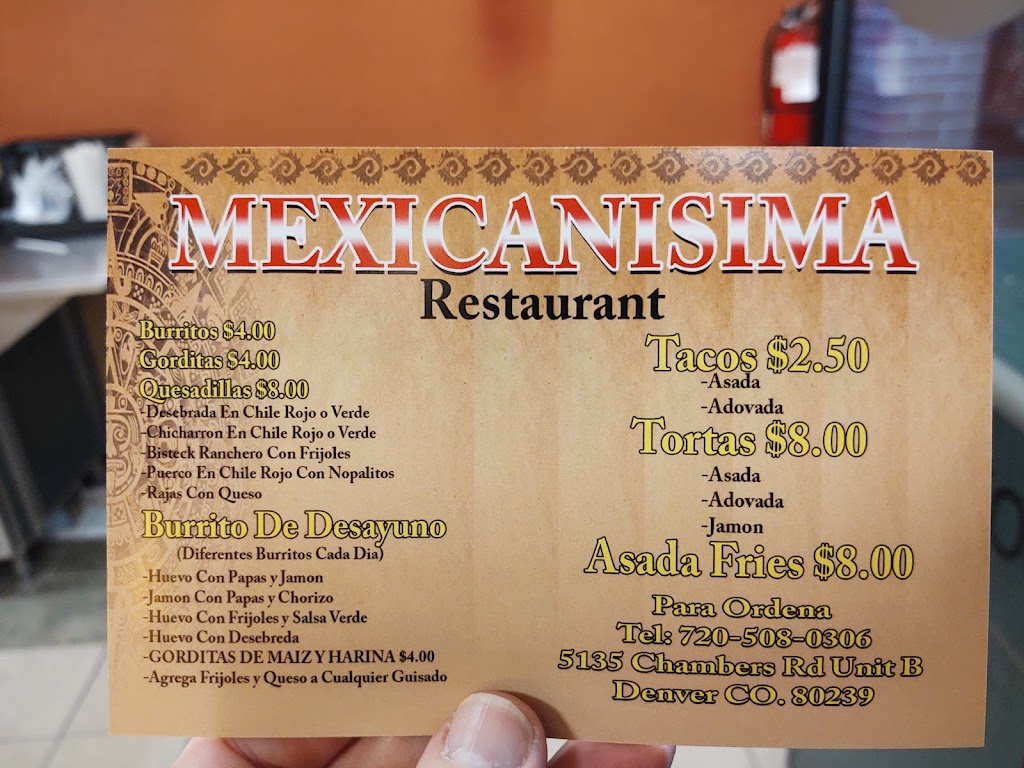 MEXICANISIMA
Restaurant
Burritos $4.00
Gorditas $4.00
Quesadillas $8.00
-Desebrada En Chile Rojo o Verde
-Chicharron En Chile Rojo o Verde
-Bisteck Ranchero Con Frijoles
-Puerco En Chile Rojo Con Nopalitos
-Rajas Con Queso
Burrito De Desayuno
(Diferentes Burritos Cada Dia)
-Huevo Con Papas y Jamon
-Jamon Con Papas y Chorizo
-Huevo Con Frijoles y Salsa Verde
-Huevo Con Desebreda
-GORDITAS DE MAIZ Y HARINA $4.00
-Agrega Frijoles y Queso a Cualquier Guisado
Tacos $2.50
-Asada
-Adovada
Tortas $8.00
-Asada
-Adovada
-Jamon
Asada Fries $8.00
Para Ordena
Tel: 720-508-0306
5135 Chambers Rd Unit B
Denver CO. 80239